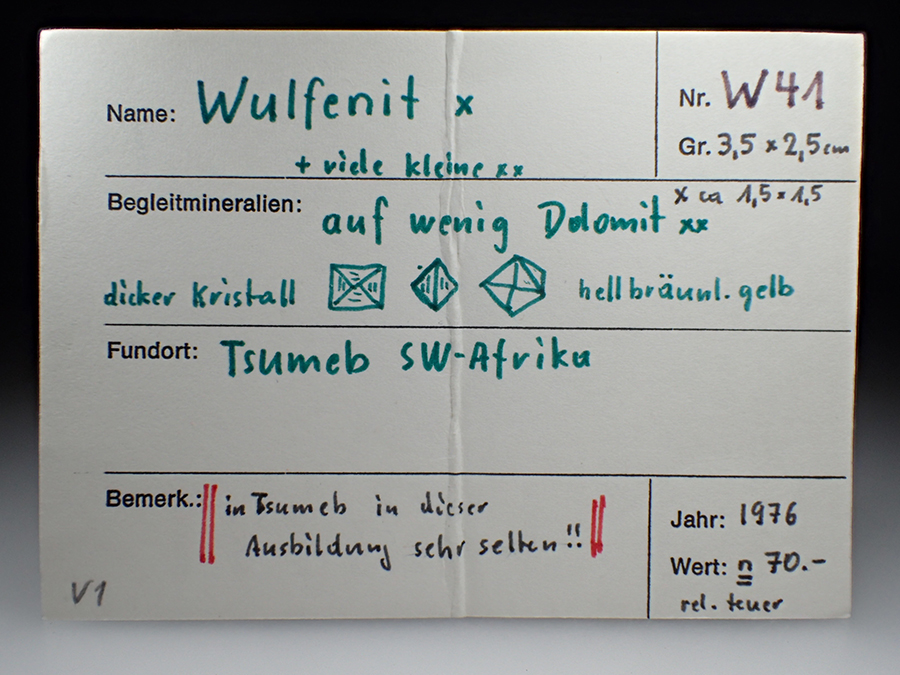 Name: Wulfenit x
+ viele kleine xx
Nr. W41
Gr. 3,5 x 2,5 cm
x ca 1,5 x 1,5
Begleitmineralien: auf wenig Dolomit xx
dicker Kristall hellbräunl. gelb
Fundort: Tsumeb SW-Afrika
Bemerk.: in Tsumeb in dieser
Ausbildung sehr selten!!
Jahr: 1976
Wert: n 70.-
rel. teuer
V1